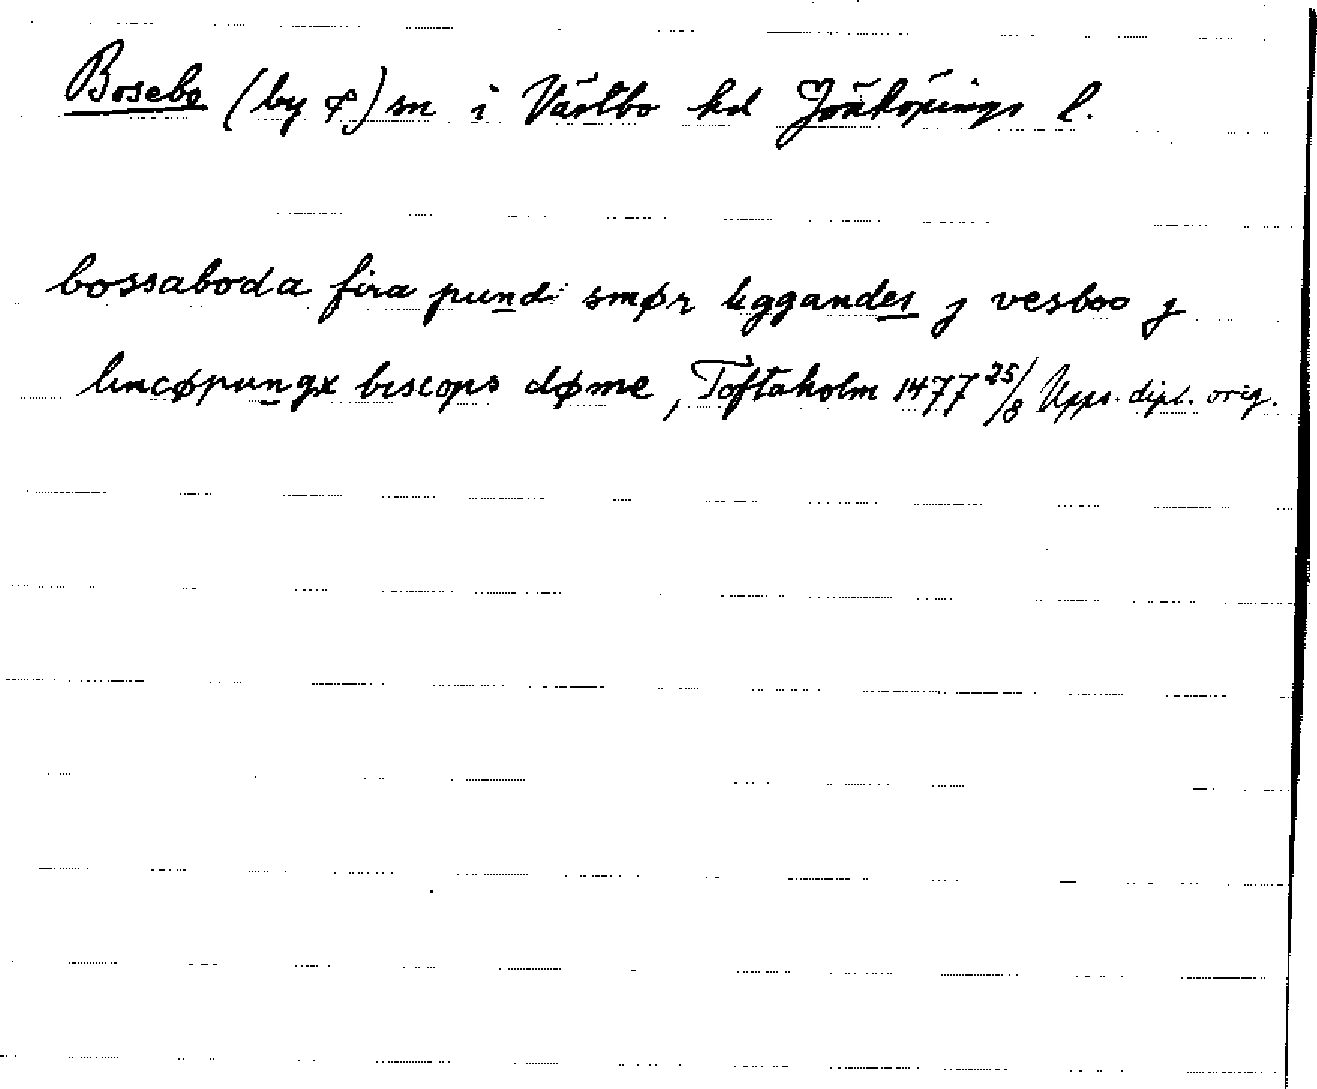 Bosebo (by o) sn i Västbo hd Jönköpings l.
bossaboda fira pund smør liggandes j vesboo j
lincøpungx biscops døme, Toftaholm 1477 25/8 Upps. dipl. orig.